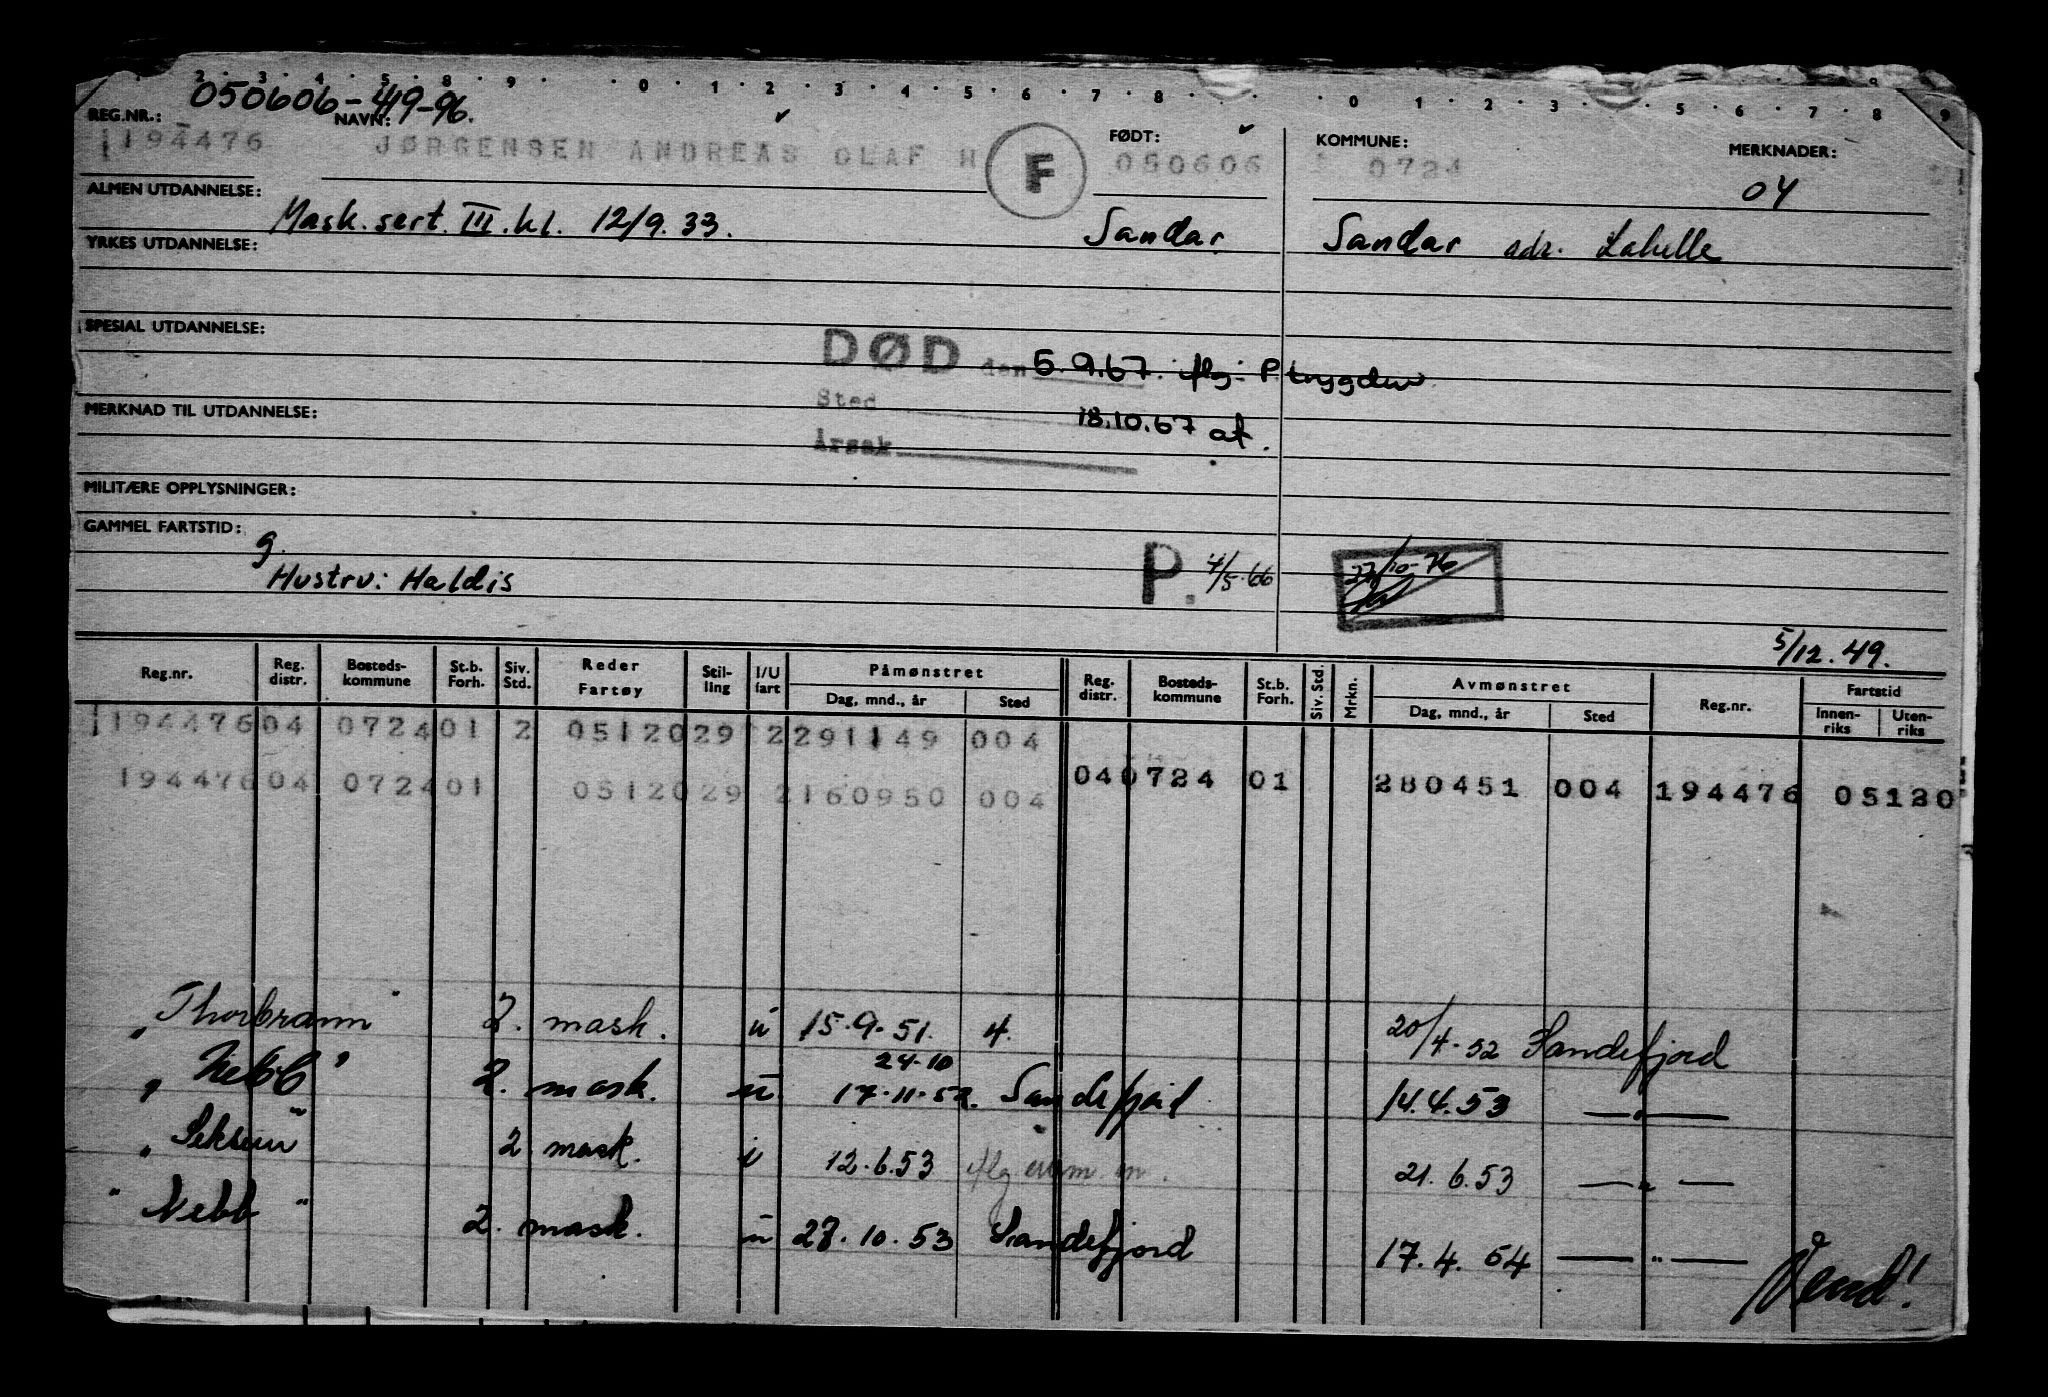 2 · 3 · 4 · 5 · 8 · 9 · · 0 · 1 · 2 · 3 · 4 · 5 · 6 · 7 · 8 · · · 0 · 1 · 2 · 3 · · 5 · 6 · 7 · 8 · 9
050606-449-96.
REG.NR.: NAVN: FØDT: KOMMUNE: MERKNADER:
194476 JØRGENSEN ANDREAS OLAF H F 050606 0724 04
ALMEN UTDANNELSE: Mask. sert. III. kl. 12/9. 33. Sandar. Sandar adr. Lahelle
YRKES UTDANNELSE:
SPESIAL UTDANNELSE:
DØD den 5.9.67. iflg. P.trygden
Sted 18.10.67 at.
MERKNAD TIL UTDANNELSE:
Årsak
MILITÆRE OPPLYSNINGER:
GAMMEL FARTSTID: g.
Hustru: Haldis P. 4/5.66 27/10-76
5/12.49.
Reg.nr. Reg. distr. Bosteds- kommune St.b. Forh. Siv. Std. Reder Fartøy Stil- ling I/U fart Påmønstret Reg. distr. Bosteds- kommune St.b. Forh. Siv. Std. Mrkn. Avmønstret Reg.nr. Fartstid
Dag, mnd., år Sted Dag, mnd., år Sted Innen- riks Uten- riks
194476 04 0724 01 2 05120 29 2 291149 004
194476 04 0724 01 05120 29 2 160950 004 04 0724 01 280451 004 194476 05120
" Thorbrann 2. mask. u 15.9.51. 4. 20/4-52 Sandefjord
24-10
" Nebb " 2. mask. u 17.11.52. Sandefjord 14.4.53 — " —
" Seksern " 2 mask. i 12.6.53 iflg 21.6.53 — " —
" Nebb " 2. mask. u 27.10.53 Sandefjord 17.4.54 — " —
Vend!